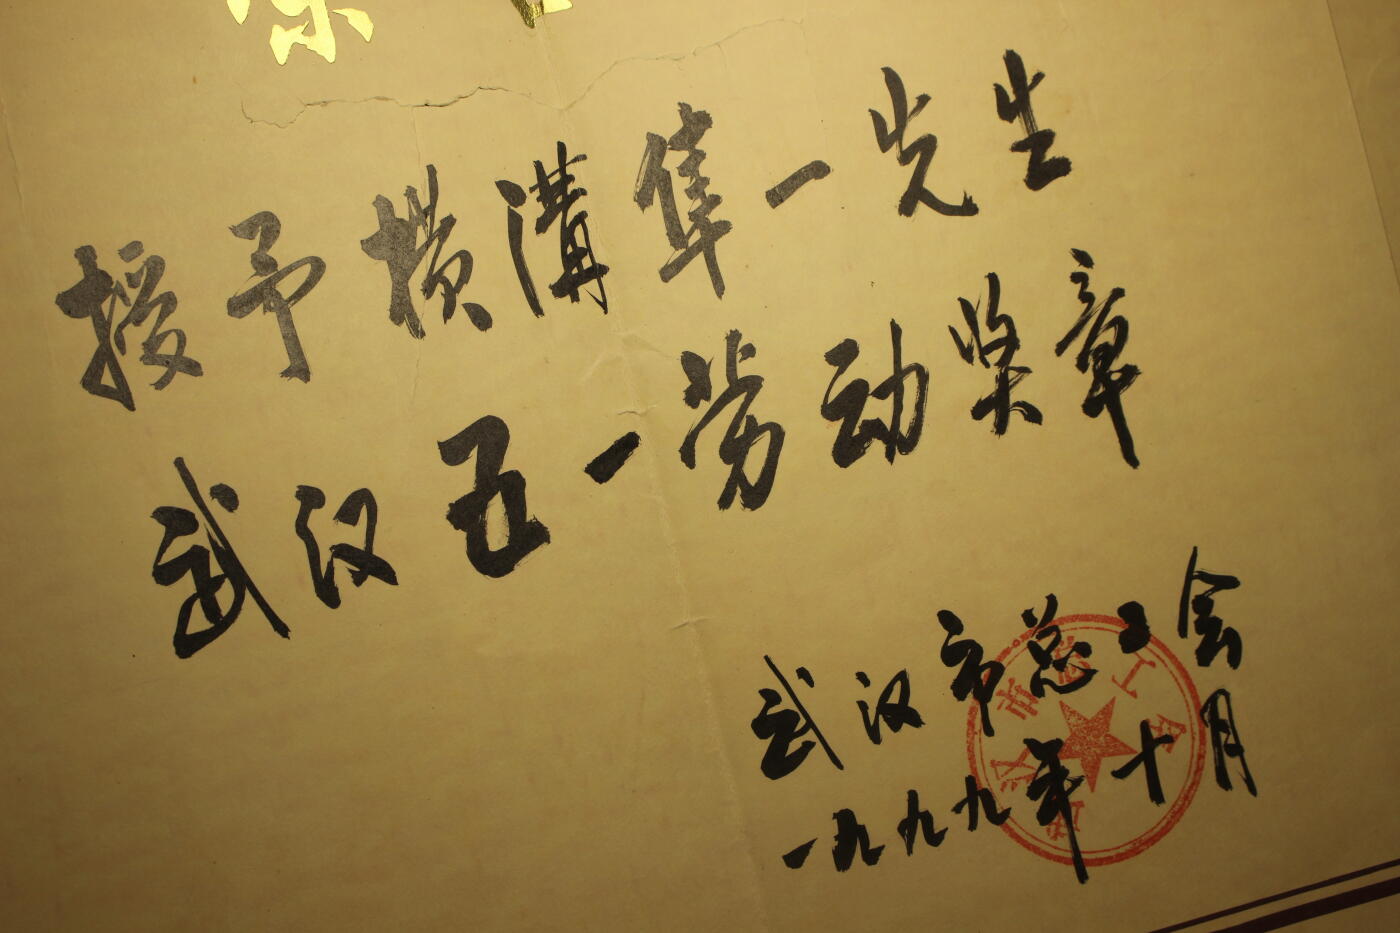 授予横溝隼一先生
武汉五一劳动奖章
武汉市总工会
一九九九年十月
武汉市总工会